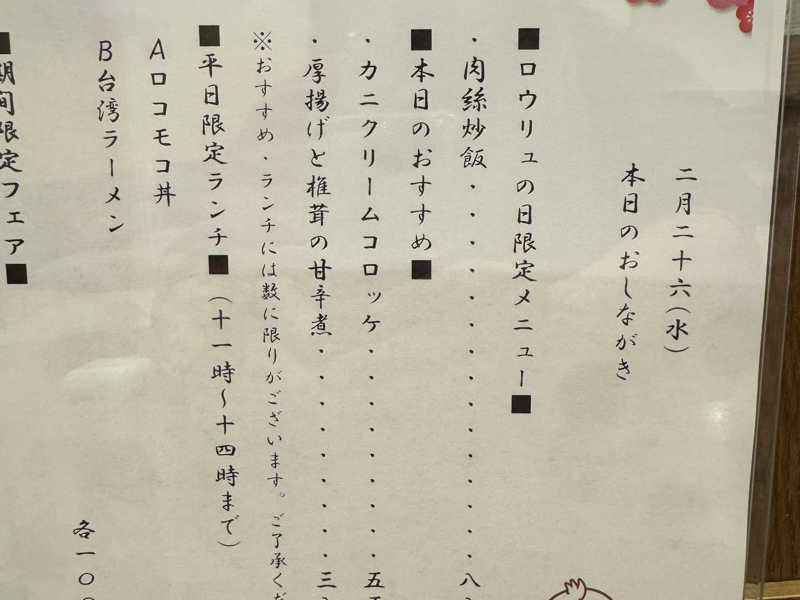 二月二十六(水)
本日のおしながき
■ロウリュの日限定メニュー■
・肉絲炒飯・・・・・・・・・・・・・・八
■本日のおすすめ■
・カニクリームコロッケ・・・・・・・・・五
・厚揚げと椎茸の甘辛煮・・・・・・・・・三
※おすすめ・ランチには数に限りがございます。ご了承くだ
■平日限定ランチ■(十一時～十四時まで)
Aロコモコ丼
B台湾ラーメン
各一〇
■期間限定フェア■